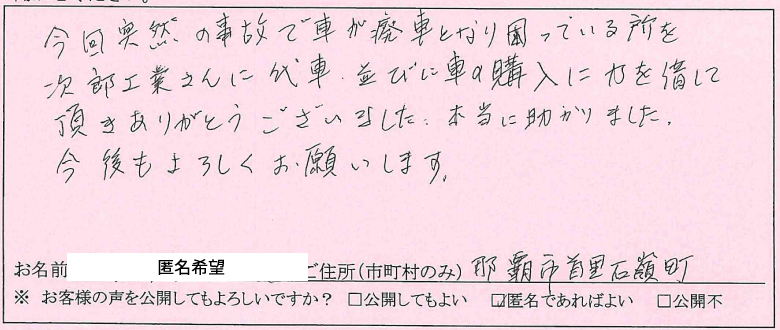 今回突然の事故で車が廃車となり困っている所を
次郎工業さんに代車、並びに車の購入に力を借して
頂きありがとうございました。本当に助かりました。
今後もよろしくお願いします。
お名前 匿名希望 ご住所(市町村のみ) 那覇市首里石嶺町
※ お客様の声を公開してもよろしいですか? □公開してもよい ☑匿名であればよい □公開不